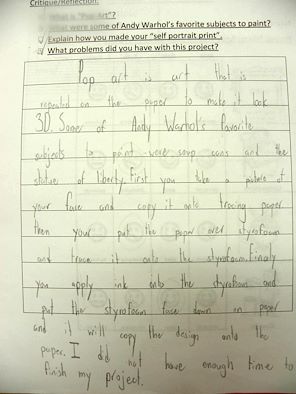 Critique/Reflection:
What is "Pop Art"?
What were some of Andy Warhol's favorite subjects to paint?
Explain how you made your "self portrait print".
What problems did you have with this project?
Pop art is art that is
repeated on the paper to make it look
3D. Some of Andy Warhol's favorite
subjects to paint were soup cans and the
statue of liberty. First you take a picture of
your face and copy it onto tracing paper.
then your put the paper over styrofoam
and trace it onto the styrofoam. Finaly
you apply ink onto the styrofoam and
put the styrofoam face down on paper
and it will copy the design onto the
paper. I did not have enough time to
finish my project.